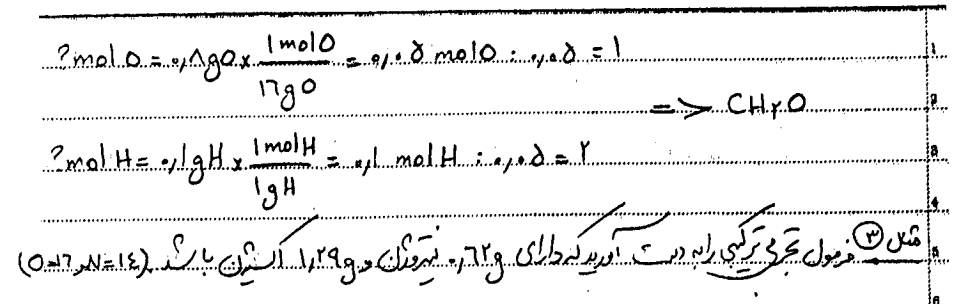 ?mol O = ۰,۸gO × 1molO / ۱۶gO = ۰,۰۵ molO : ۰,۰۵ = ۱
=> CH۲O
?mol H = ۰,۱gH × 1molH / ۱gH = ۰,۱ molH : ۰,۰۵ = ۲
مثال ③ فرمول تجربی ترکیبی را به دست آورید که دارای ۰,۶۲g نیتروژن و ۱,۲۹g اکسیژن باشد. (O=۱۶ و N=۱۴)
1
2
3
4
5
6